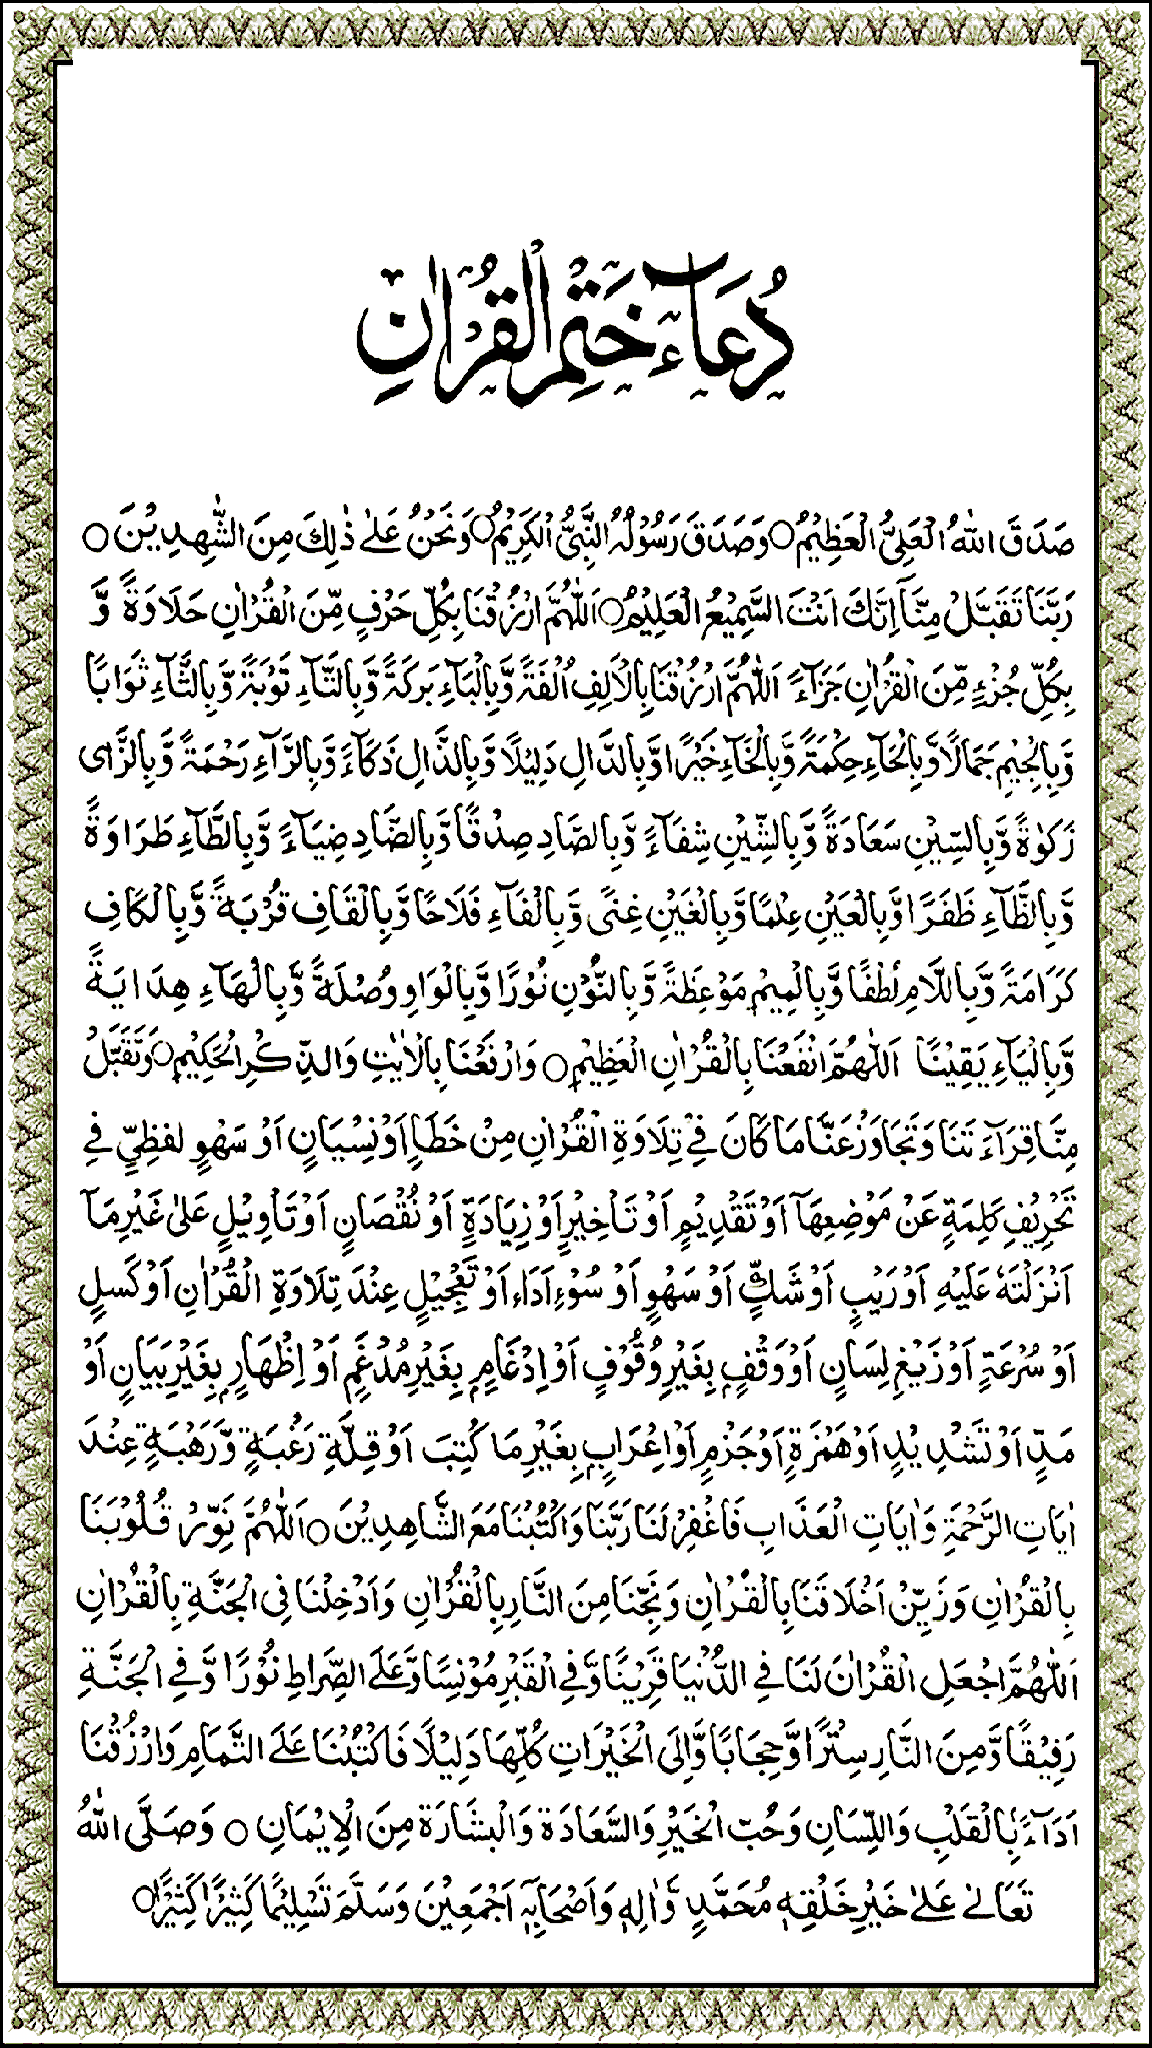 دُعَآءُ خَتْمِ الْقُرْاٰنِ
صَدَقَ اللّٰهُ الْعَلِيُّ الْعَظِيْمُ ○ وَصَدَقَ رَسُوْلُهُ النَّبِيُّ الْكَرِيْمُ ○ وَنَحْنُ عَلٰى ذٰلِكَ مِنَ الشّٰهِدِيْنَ ○
رَبَّنَا تَقَبَّلْ مِنَّآ اِنَّكَ اَنْتَ السَّمِيْعُ الْعَلِيْمُ ○ اَللّٰهُمَّ ارْزُقْنَا بِكُلِّ حَرْفٍ مِّنَ الْقُرْاٰنِ حَلَاوَةً وَّ
بِكُلِّ جُزْءٍ مِّنَ الْقُرْاٰنِ جَزَآءً اَللّٰهُمَّ ارْزُقْنَا بِالْاَلِفِ اُلْفَةً وَّبِالْبَآءِ بَرَكَةً وَّبِالتَّآءِ تَوْبَةً وَّبِالثَّآءِ ثَوَابًا
وَّبِالْجِيْمِ جَمَالًا وَّبِالْحَآءِ حِكْمَةً وَّبِالْخَآءِ خَيْرًا وَّبِالدَّالِ دَلِيْلًا وَّبِالذَّالِ ذَكَآءً وَّبِالرَّآءِ رَحْمَةً وَّبِالزَّاىِ
زَكٰوةً وَّبِالسِّيْنِ سَعَادَةً وَّبِالشِّيْنِ شِفَآءً وَّبِالصَّادِ صِدْقًا وَّبِالضَّادِ ضِيَآءً وَّبِالطَّآءِ طَرَاوَةً
وَّبِالظَّآءِ ظَفَرًا وَّبِالْعَيْنِ عِلْمًا وَّبِالْغَيْنِ غِنًى وَّبِالْفَآءِ فَلَاحًا وَّبِالْقَافِ قُرْبَةً وَّبِالْكَافِ
كَرَامَةً وَّبِاللَّامِ لُطْفًا وَّبِالْمِيْمِ مَوْعِظَةً وَّبِالنُّوْنِ نُوْرًا وَّبِالْوَاوِ وُصْلَةً وَّبِالْهَآءِ هِدَايَةً
وَّبِالْيَآءِ يَقِيْنًا اَللّٰهُمَّ انْفَعْنَا بِالْقُرْاٰنِ الْعَظِيْمِ ○ وَارْفَعْنَا بِالْاٰيٰتِ وَالذِّكْرِ الْحَكِيْمِ ○ وَتَقَبَّلْ
مِنَّا قِرَآءَتَنَا وَتَجَاوَزْ عَنَّا مَا كَانَ فِيْ تِلَاوَةِ الْقُرْاٰنِ مِنْ خَطَاٍ اَوْ نِسْيَانٍ اَوْ سَهْوٍ لفظِيٍّ فِي
تَحْرِيْفِ كَلِمَةٍ عَنْ مَوْضِعِهَآ اَوْ تَقْدِيْمٍ اَوْ تَاْخِيْرٍ اَوْ زِيَادَةٍ اَوْ نُقْصَانٍ اَوْ تَاْوِيْلٍ عَلٰى غَيْرِ مَآ
اَنْزَلْتَهٗ عَلَيْهِ اَوْ رَيْبٍ اَوْ شَكٍّ اَوْ سَهْوٍ اَوْ سُوْءِ اَدَاءٍ اَوْ تَعْجِيْلٍ عِنْدَ تِلَاوَةِ الْقُرْاٰنِ اَوْ كَسَلٍ
اَوْ سُرْعَةٍ اَوْ زَيْغِ لِسَانٍ اَوْ وَقْفٍ بِغَيْرِ وُقُوْفٍ اَوْ اِدْغَامٍ بِغَيْرِ مُدْغَمٍ اَوْ اِظْهَارٍ بِغَيْرِ بَيَانٍ اَوْ
مَدٍّ اَوْ تَشْدِيْدٍ اَوْ هَمْزَةٍ اَوْ جَزْمٍ اَوْ اِعْرَابٍ بِغَيْرِ مَا كُتِبَ اَوْ قِلَّةِ رَغْبَةٍ وَّرَهْبَةٍ عِنْدَ
اٰيَاتِ الرَّحْمَةِ وَاٰيَاتِ الْعَذَابِ فَاغْفِرْ لَنَا رَبَّنَا وَاكْتُبْنَا مَعَ الشَّاهِدِيْنَ ○ اَللّٰهُمَّ نَوِّرْ قُلُوْبَنَا
بِالْقُرْاٰنِ وَزَيِّنْ اَخْلَاقَنَا بِالْقُرْاٰنِ وَنَجِّنَا مِنَ النَّارِ بِالْقُرْاٰنِ وَاَدْخِلْنَا فِى الْجَنَّةِ بِالْقُرْاٰنِ
اَللّٰهُمَّ اجْعَلِ الْقُرْاٰنَ لَنَا فِي الدُّنْيَا قَرِيْنًا وَّفِي الْقَبْرِ مُوْنِسًا وَّعَلَى الصِّرَاطِ نُوْرًا وَّفِي الْجَنَّةِ
رَفِيْقًا وَّمِنَ النَّارِ سِتْرًا وَّحِجَابًا وَّاِلَى الْخَيْرَاتِ كُلِّهَا دَلِيْلًا فَاكْتُبْنَا عَلَى التَّمَامِ وَارْزُقْنَا
اَدَآءً بِالْقَلْبِ وَاللِّسَانِ وَحُبِّ الْخَيْرِ وَالسَّعَادَةِ وَالْبِشَارَةِ مِنَ الْاِيْمَانِ ○ وَصَلَّى اللّٰهُ
تَعَالٰى عَلٰى خَيْرِ خَلْقِهٖ مُحَمَّدٍ وَّاٰلِهٖ وَاَصْحَابِهٖٓ اَجْمَعِيْنَ وَسَلَّمَ تَسْلِيْمًا كَثِيْرًا كَثِيْرًا ○